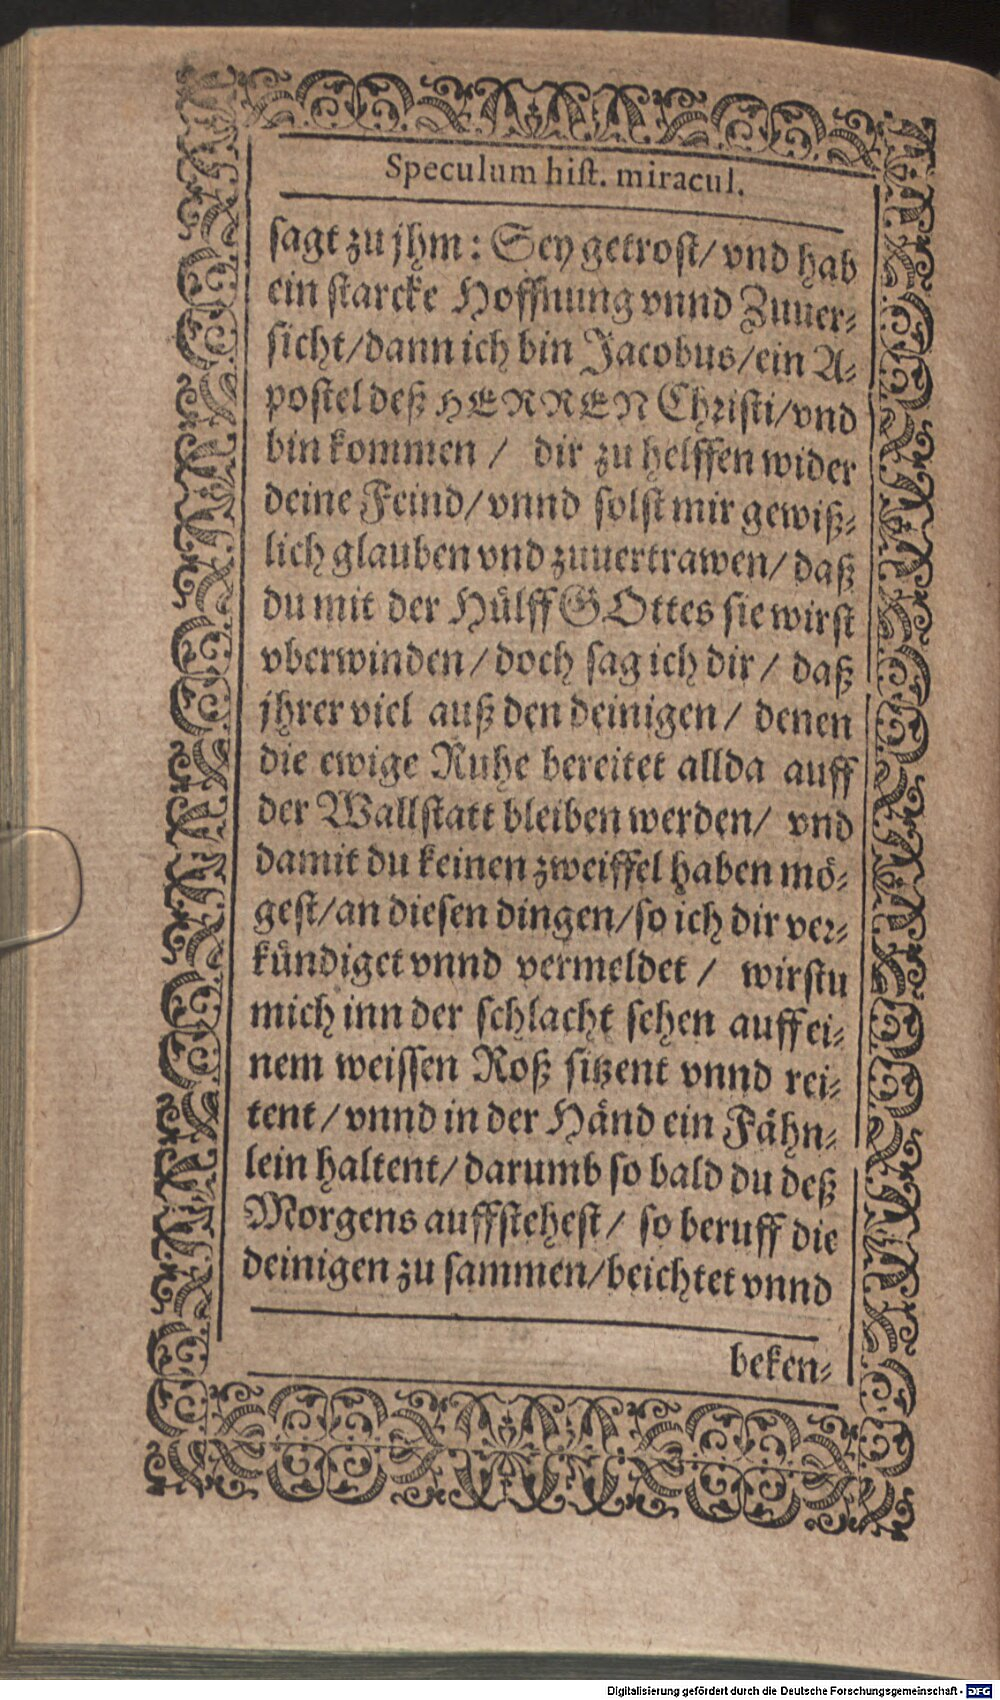 Speculum hist. miracul.
sagt zu jhm: Sey getrost/ vnd hab
ein starcke Hoffnung vnnd Zuuer-
sicht/dann ich bin Jacobus/ein A-
postel deß HERREN Christi/vnd
bin kommen / dir zu helffen wider
deine Feind/vnnd solst mir gewiß-
lich glauben vnd zuuertrawen/ daß
du mit der Hülff GOttes sie wirst
vberwinden/doch sag ich dir/ daß
jhrer viel auß den deinigen/ denen
die ewige Ruhe bereitet allda auff
der Wallstatt bleiben werden/ vnd
damit du keinen zweiffel haben mö-
gest/an diesen dingen/so ich dir ver-
kündiget vnnd vermeldet / wirstu
mich inn der schlacht sehen auff ei-
nem weissen Roß sitzent vnnd rei-
tent/vnnd in der Händ ein Fähn-
lein haltent/darumb so bald du deß
Morgens auffstehest/ so beruff die
deinigen zu sammen/beichtet vnnd
beken-
Digitalisierung gefördert durch die Deutsche Forschungsgemeinschaft - DFG